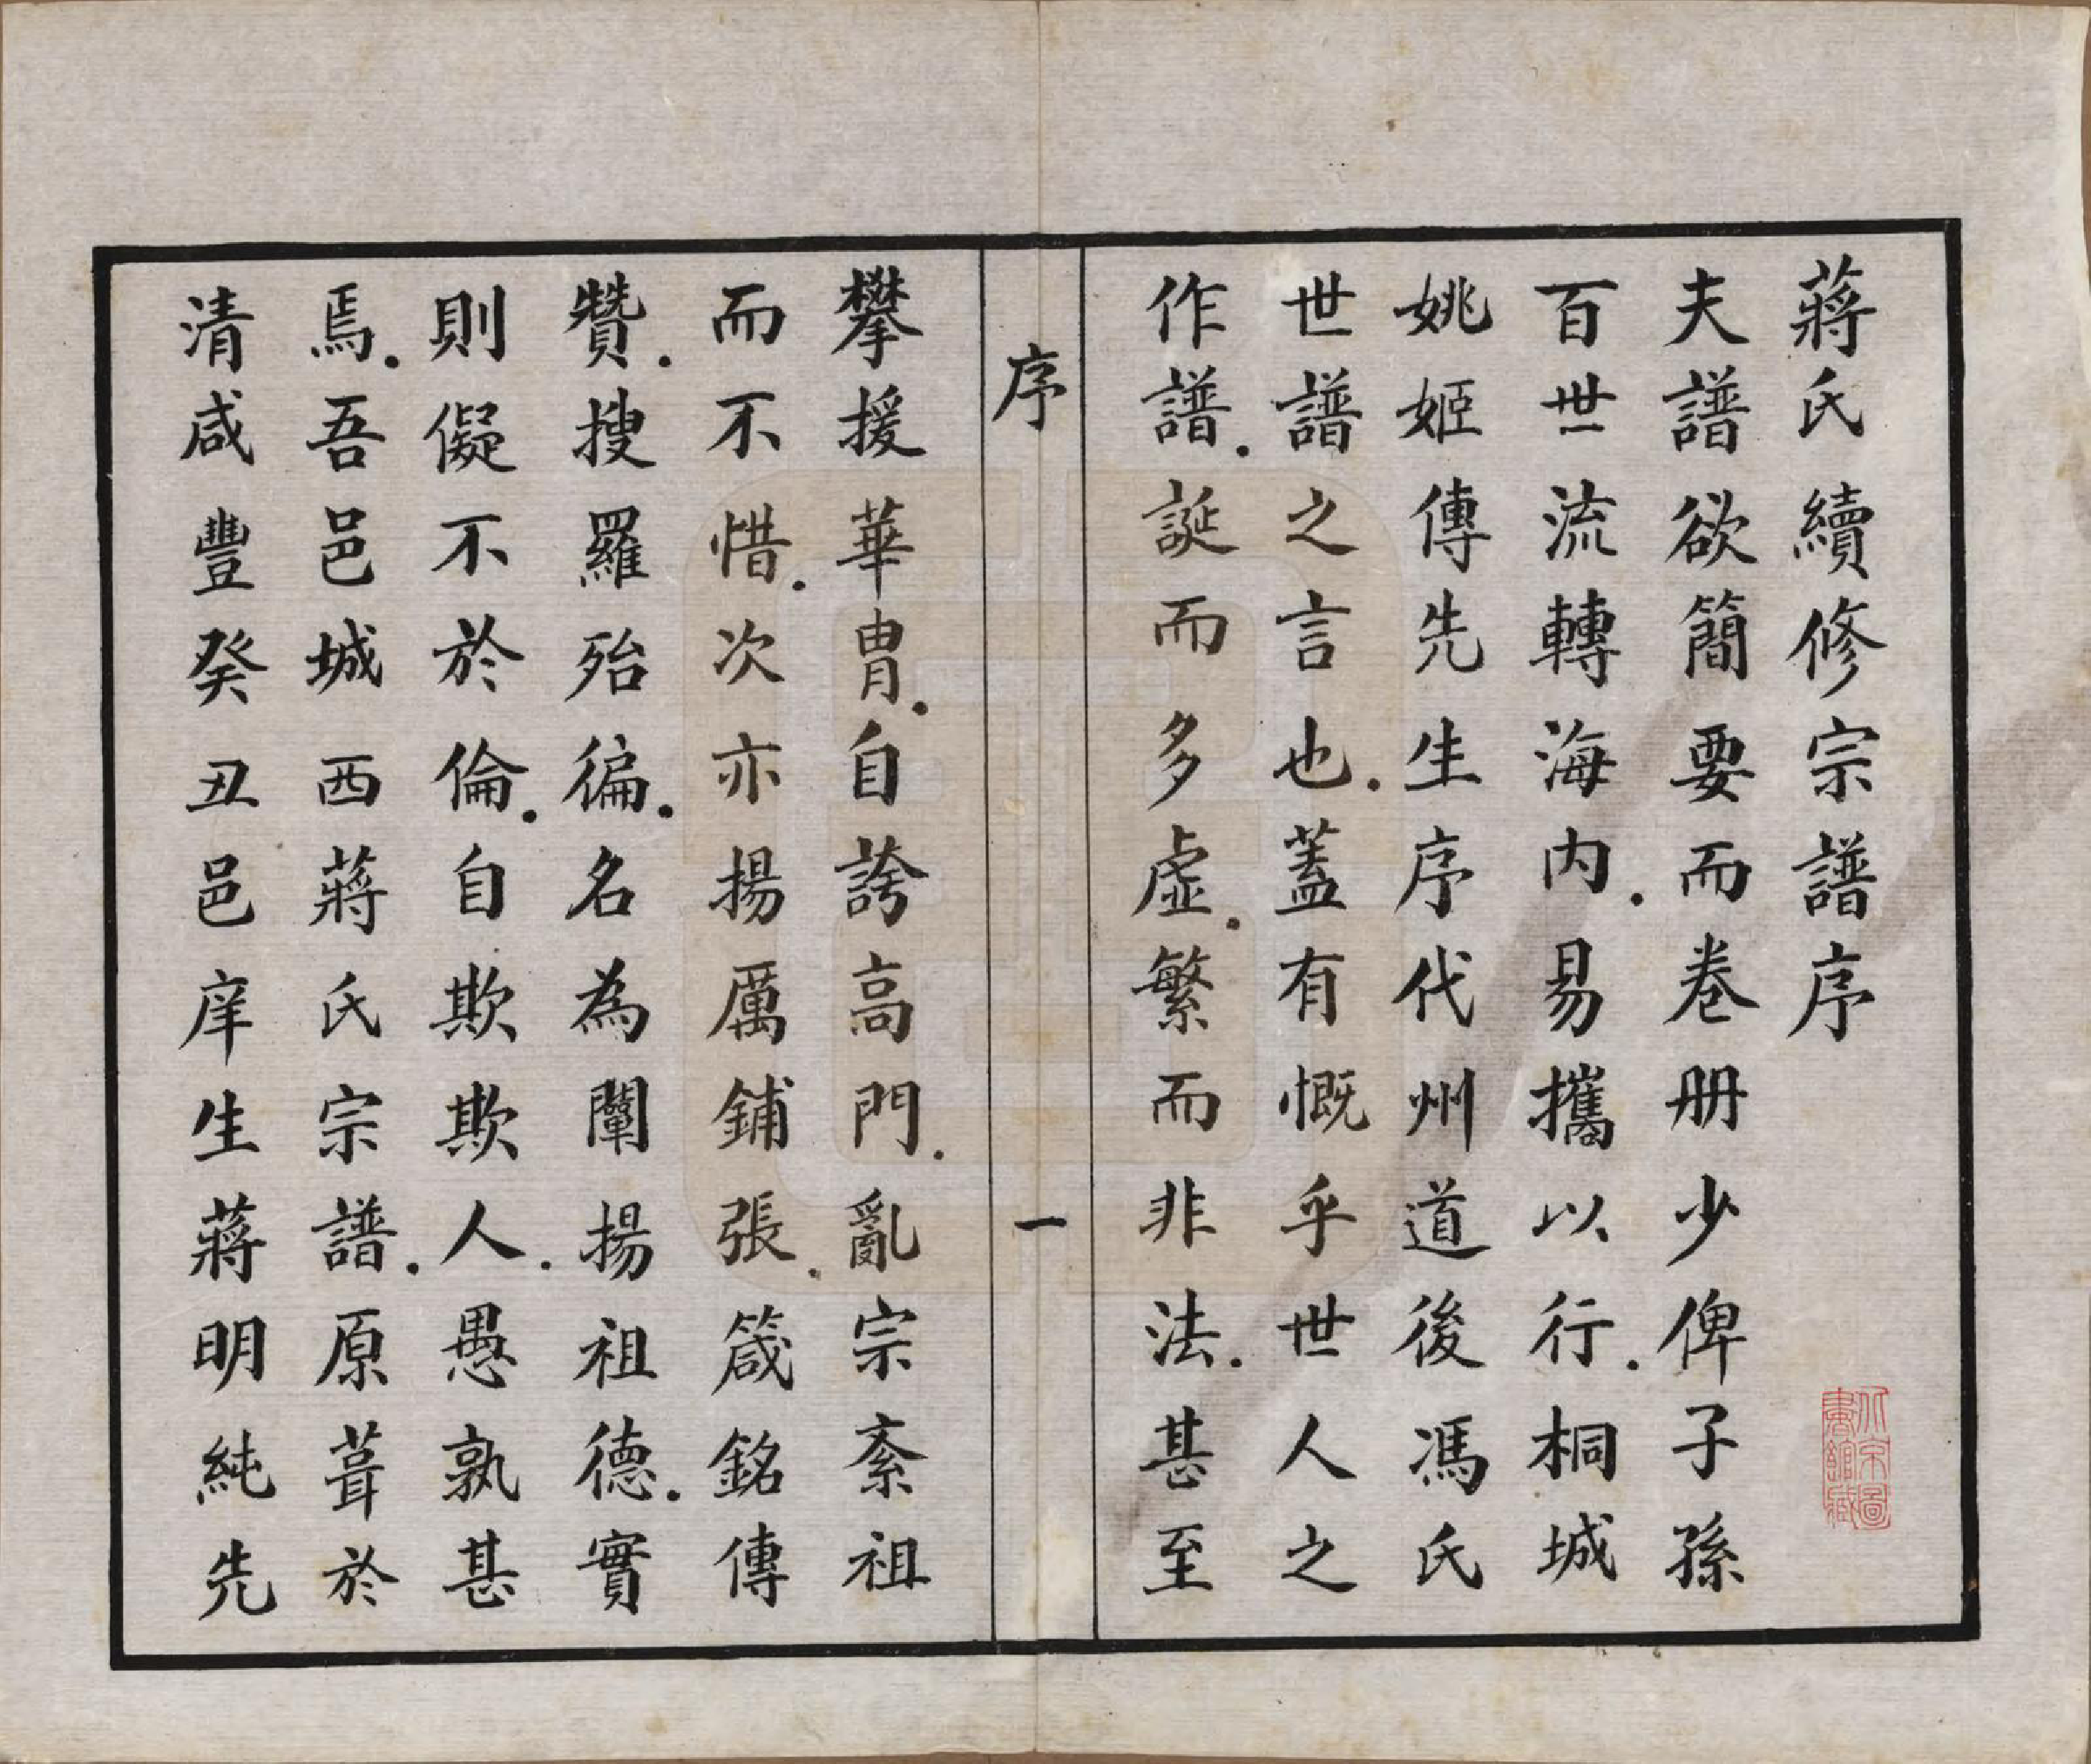 蔣氏續修宗譜序
夫譜欲簡要而卷册少俾子孫
百世流轉海内.易攜以行.桐城
姚姬傳先生序代州道後馮氏
世譜之言也.蓋有慨乎世人之
作譜.誕而多虛.繁而非法.甚至
序
一
攀援華胄.自誇高門.亂宗紊祖
而不惜.次亦揚厲鋪張.箴銘傳
贊.搜羅殆徧.名為闡揚祖德.實
則儗不於倫.自欺欺人.愚孰甚
焉.吾邑城西蔣氏宗譜.原葺於
清咸豐癸丑邑庠生蔣明純先